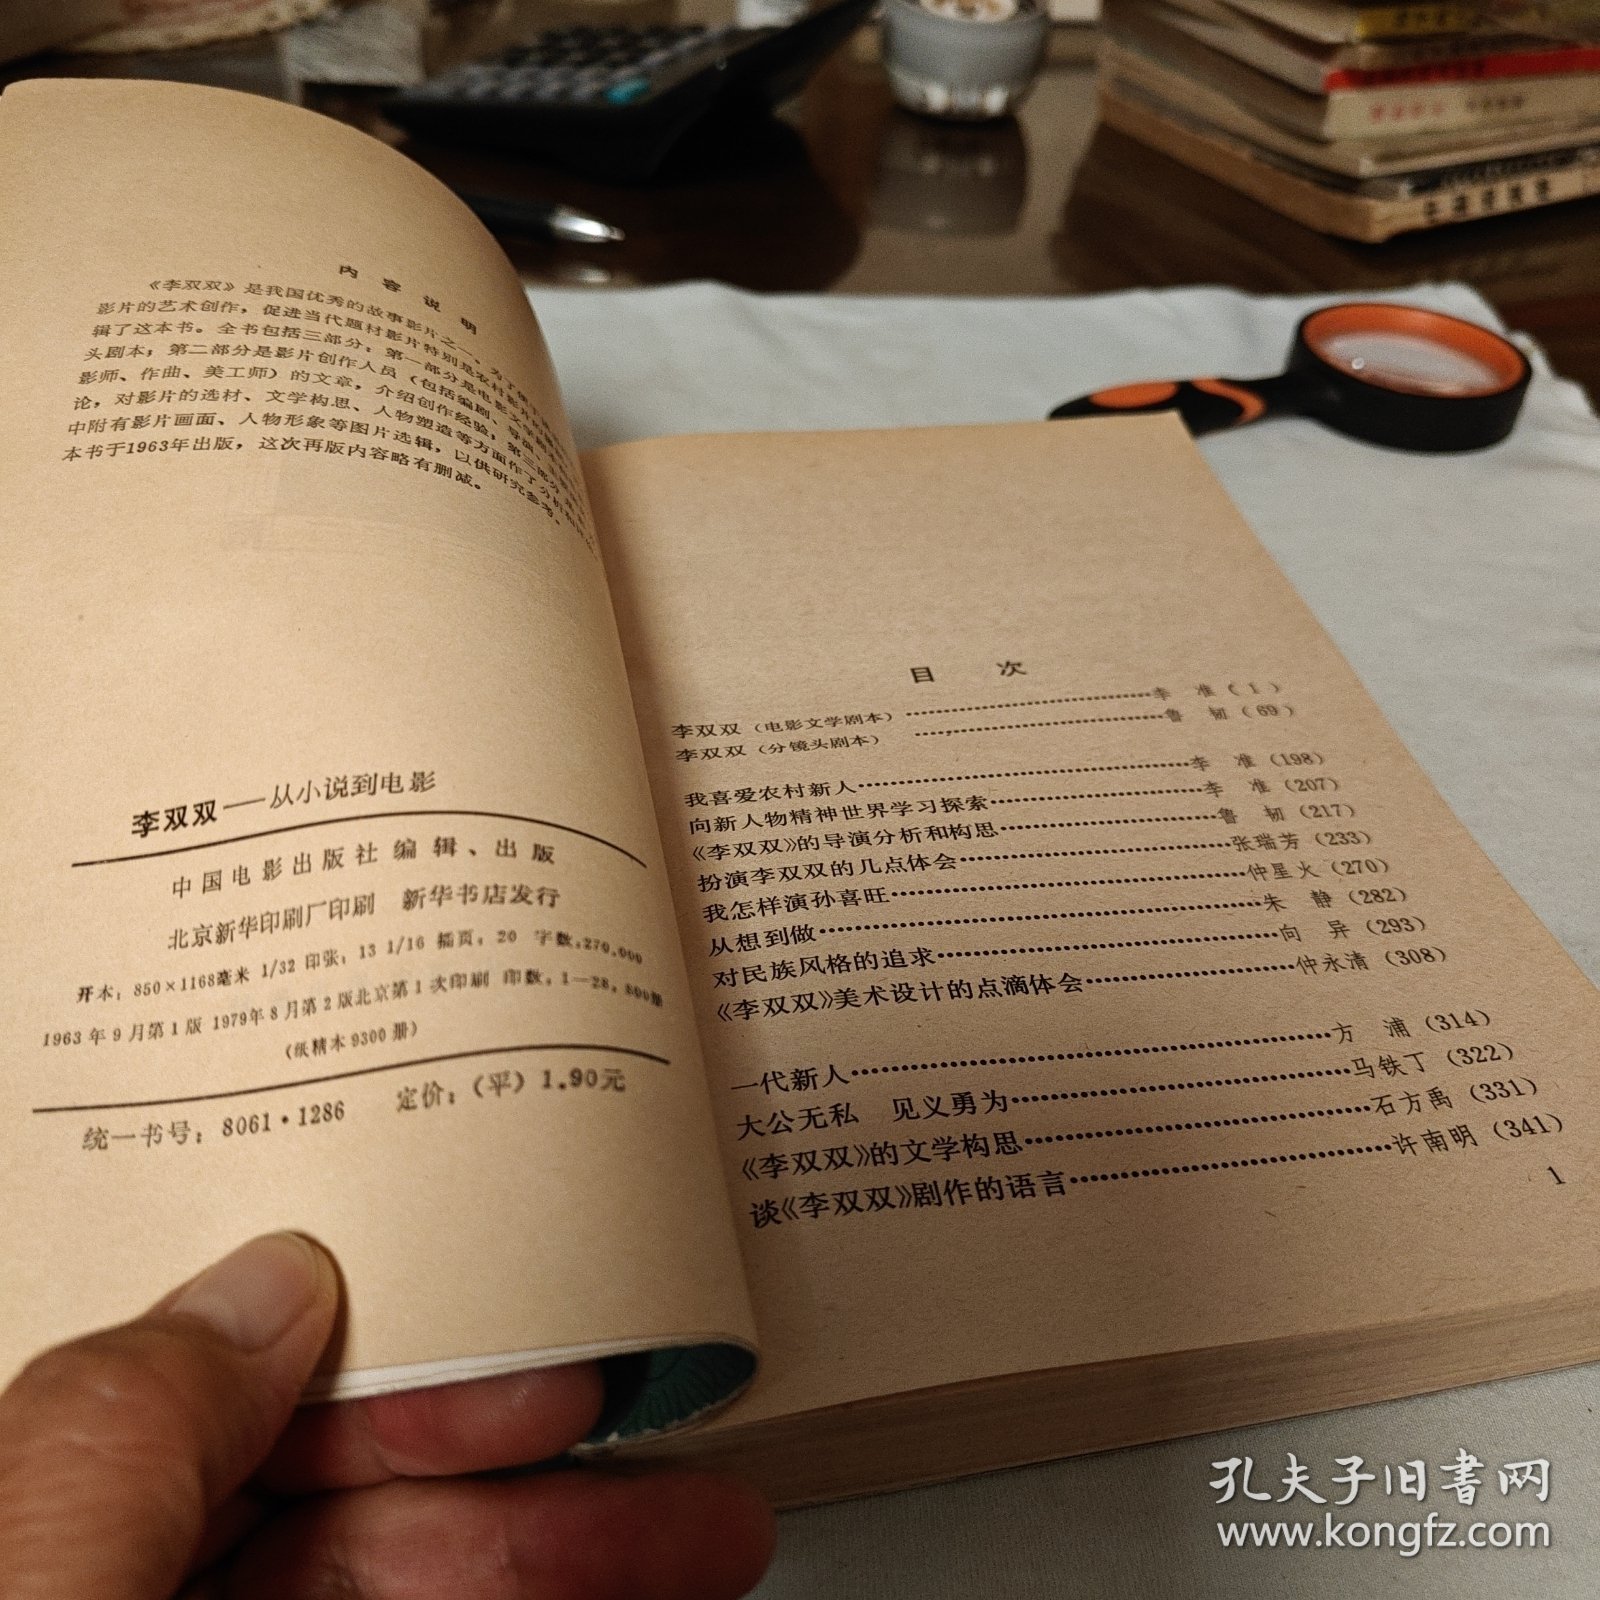 内容说明
《李双双》是我国优秀的故事影片之一。为了
影片的艺术创作，促进当代题材影片特别是农村影片的
辑了这本书。全书包括三部分：第一部分是电影文学剧本
头剧本；第二部分是影片创作人员（包括编剧、导演、
影师、作曲、美工师）的文章，介绍创作经验；第三部分是
论，对影片的选材、文学构思、人物塑造等方面作了分析和
中附有影片画面、人物形象等图片选辑，以供研究参考。
本书于1963年出版，这次再版内容略有删减。
李双双——从小说到电影
中国电影出版社编辑、出版
北京新华印刷厂印刷 新华书店发行
开本：850×1168毫米 1/32 印张：13 1/16 插页：20 字数：270,000
1963年9月第1版 1979年8月第2版北京第1次印刷 印数：1—28,800册
（纸精本9300册）
统一书号：8061·1286 定价：（平）1.90元
目 次
李双双（电影文学剧本）……李 准（1）
李双双（分镜头剧本）……鲁 韧（69）
我喜爱农村新人……李 准（198）
向新人物精神世界学习探索……李 准（207）
《李双双》的导演分析和构思……鲁 韧（217）
扮演李双双的几点体会……张瑞芳（233）
我怎样演孙喜旺……仲星火（270）
从想到做……朱 静（282）
对民族风格的追求……向 异（293）
《李双双》美术设计的点滴体会……仲永清（308）
一代新人……方 浦（314）
大公无私 见义勇为……马铁丁（322）
《李双双》的文学构思……石方禹（331）
谈《李双双》剧作的语言……许南明（341）
1
孔夫子旧书网
www.kongfz.com